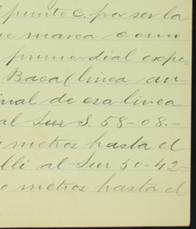 punto c. por ser la
marca como
primordial expe
Baca (linea au
nal de esa linea
al Sur S. 58-08.-
metros hasta el
lli al Sur 50-42-
metros hasta el